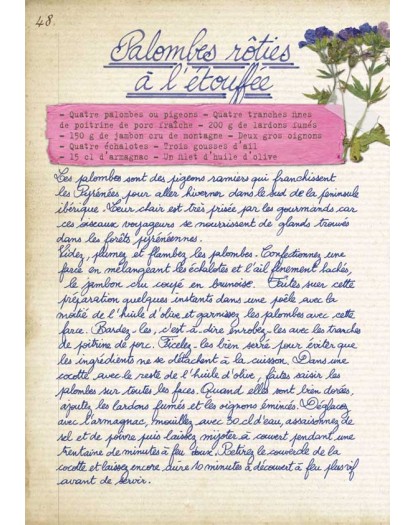 48.
Palombes rôties
à l'étouffée
- Quatre palombes ou pigeons - Quatre tranches fines
de poitrine de porc fraîche - 200 g de lardons fumés
- 150 g de jambon cru de montagne - Deux gros oignons
- Quatre échalotes - Trois gousses d'ail
- 15 cl d'armagnac - Un filet d'huile d'olive
Les palombes sont des pigeons ramiers qui franchissent
les Pyrénées pour aller hiverner dans le sud de la péninsule
ibérique. Leur chair est très prisée par les gourmands car
ces oiseaux voyageurs se nourrissent de glands trouvés
dans les forêts pyrénéennes.
Videz, plumez et flambez les palombes. Confectionnez une
farce en mélangeant les échalotes et l'ail finement hachés,
le jambon cru coupé en brunoise. Faites suer cette
préparation quelques instants dans une poêle avec la
moitié de l'huile d'olive et garnissez les palombes avec cette
farce. Bardez-les, c'est-à-dire enrobez-les avec les tranches
de poitrine de porc. Ficelez-les bien serré pour éviter que
les ingrédients ne se détachent à la cuisson. Dans une
cocotte avec le reste de l'huile d'olive, faites saisir les
palombes sur toutes les faces. Quand elles sont bien dorées,
ajoutez les lardons fumés et les oignons émincés. Déglacez
avec l'armagnac, mouillez avec 50 cl d'eau, assaisonnez de
sel et de poivre puis laissez mijoter à couvert pendant une
trentaine de minutes à feu doux. Retirez le couvercle de la
cocotte et laissez encore cuire 10 minutes à découvert à feu plus vif
avant de servir.